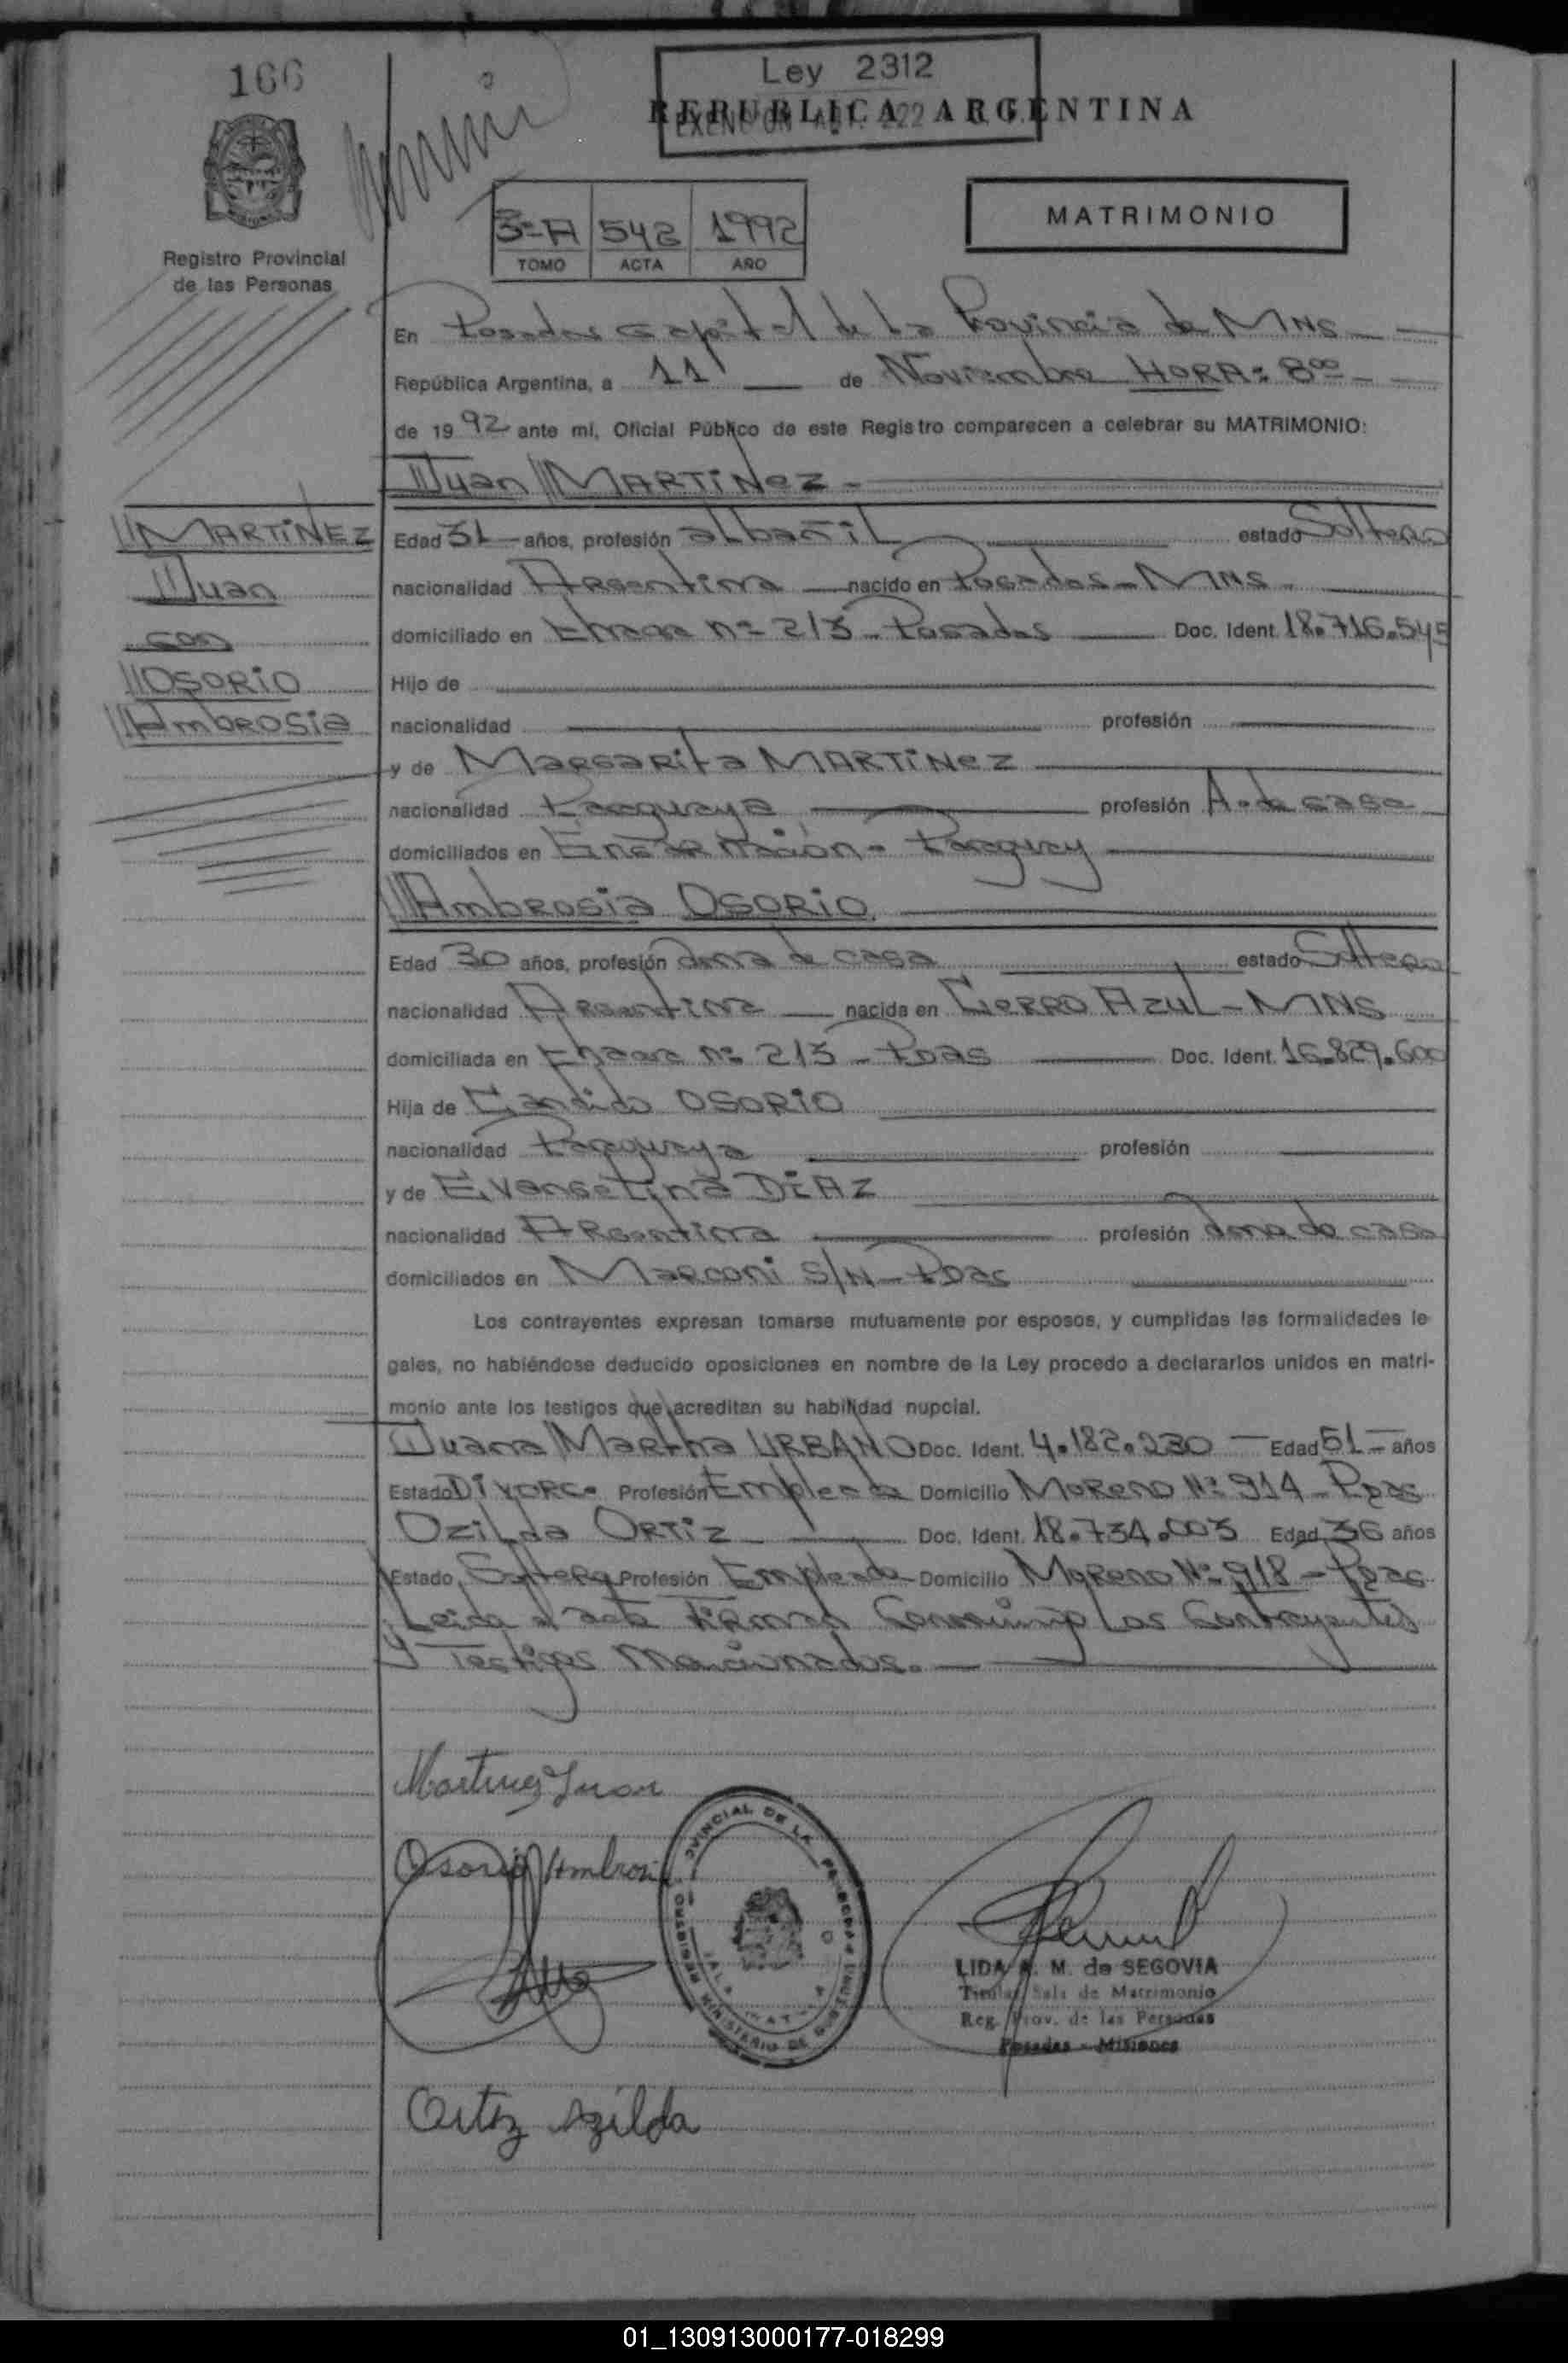 166
Ley 2312
REPUBLICA ARGENTINA
EXENC ON ART. 222
3º A 542 1992
TOMO ACTA AÑO
MATRIMONIO
Registro Provincial
de las Personas
En Posadas Capital de la Provincia de MNS
República Argentina, a 11 de Noviembre HORA: 8ºº
de 1992 ante mí, Oficial Público de este Registro comparecen a celebrar su MATRIMONIO:
Juan MARTiNez
MARTiNEZ
Juan
con
OSORiO
AmbROSia
Edad 31 años, profesión albañiL estado Soltero
nacionalidad ARgentina nacido en Posadas - MNS
domiciliado en nº 213 - Posadas Doc. Ident. 18.716.545
Hijo de
nacionalidad profesión
y de MaRgaRita MARTiNez
nacionalidad Paraguaya profesión A. de casa
domiciliados en EncaRnación - Paraguay
AmbRosia OSORiO
Edad 30 años, profesión ama de casa estado Soltera
nacionalidad ARgentina nacida en CeRRO AzuL - MNS
domiciliada en nº 213 - Pdas Doc. Ident. 16.829.600
Hija de Candido OSORiO
nacionalidad Paraguaya profesión
y de EvangeLina DiAz
nacionalidad ARgentina profesión ama de casa
domiciliados en MaRconi S/N - Pdas
Los contrayentes expresan tomarse mutuamente por esposos, y cumplidas las formalidades le-
gales, no habiéndose deducido oposiciones en nombre de la Ley procedo a declararlos unidos en matri-
monio ante los testigos que acreditan su habilidad nupcial.
Juana MaRtha URBANO Doc. Ident. 4.182.230 Edad 51 años
Estado DivoRc. Profesión Empleada Domicilio MoReno Nº 914 - Pdas
OziLda ORTiz Doc. Ident. 18.734.003 Edad 36 años
Estado Soltera Profesión Empleada Domicilio MoReno Nº 918 - Pdas
Leida el acta FiRman Conmigo Los Contrayentes
y Testigos Mencionados.
Martinez Juan
Osorio Ambrosia
REGISTRO PROVINCIAL DE LAS PERSONAS
MINISTERIO DE GOBIERNO
LIDA R. M. de SEGOVIA
Titular Sala de Matrimonio
Reg. Prov. de las Personas
Posadas - Misiones
Ortiz Azilda
01_130913000177-018299